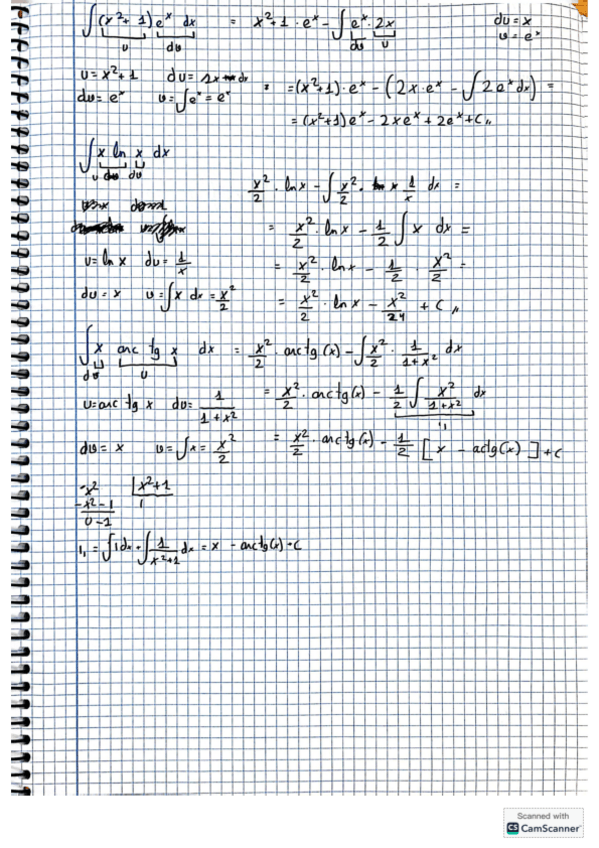 ∫ (x²+1) eˣ dx = x²+1 · eˣ - ∫ eˣ · 2x du = x
u dv dv u v = eˣ
u = x²+1 du = 2x dx = (x²+1) · eˣ - (2x · eˣ - ∫ 2eˣ dx) =
dv = eˣ v = ∫eˣ = eˣ = (x²+1) eˣ - 2xeˣ + 2eˣ + C
∫ x ln x dx
x²/2 · ln x - ∫ x²/2 · 1/x dx =
= x²/2 · ln x - 1/2 ∫ x dx =
u = ln x du = 1/x = x²/2 · ln x - 1/2 · x²/2 =
dv = x v = ∫ x dx = x²/2 = x²/2 · ln x - x²/4 + C
∫ x arc tg x dx = x²/2 · arctg(x) - ∫ x²/2 · 1/(1+x²) dx
dv u
u = arc tg x du = 1/(1+x²) = x²/2 · arctg(x) - 1/2 ∫ x²/(1+x²) dx
dv = x v = ∫x = x²/2 = x²/2 · arctg(x) - 1/2 [ x - actg(x) ] + C
x² x²+1
-x²-1 1
0-1
I₁ = ∫1dx + ∫ 1/(x²+1) dx = x - arctg(x) + C
Scanned with
CS CamScanner